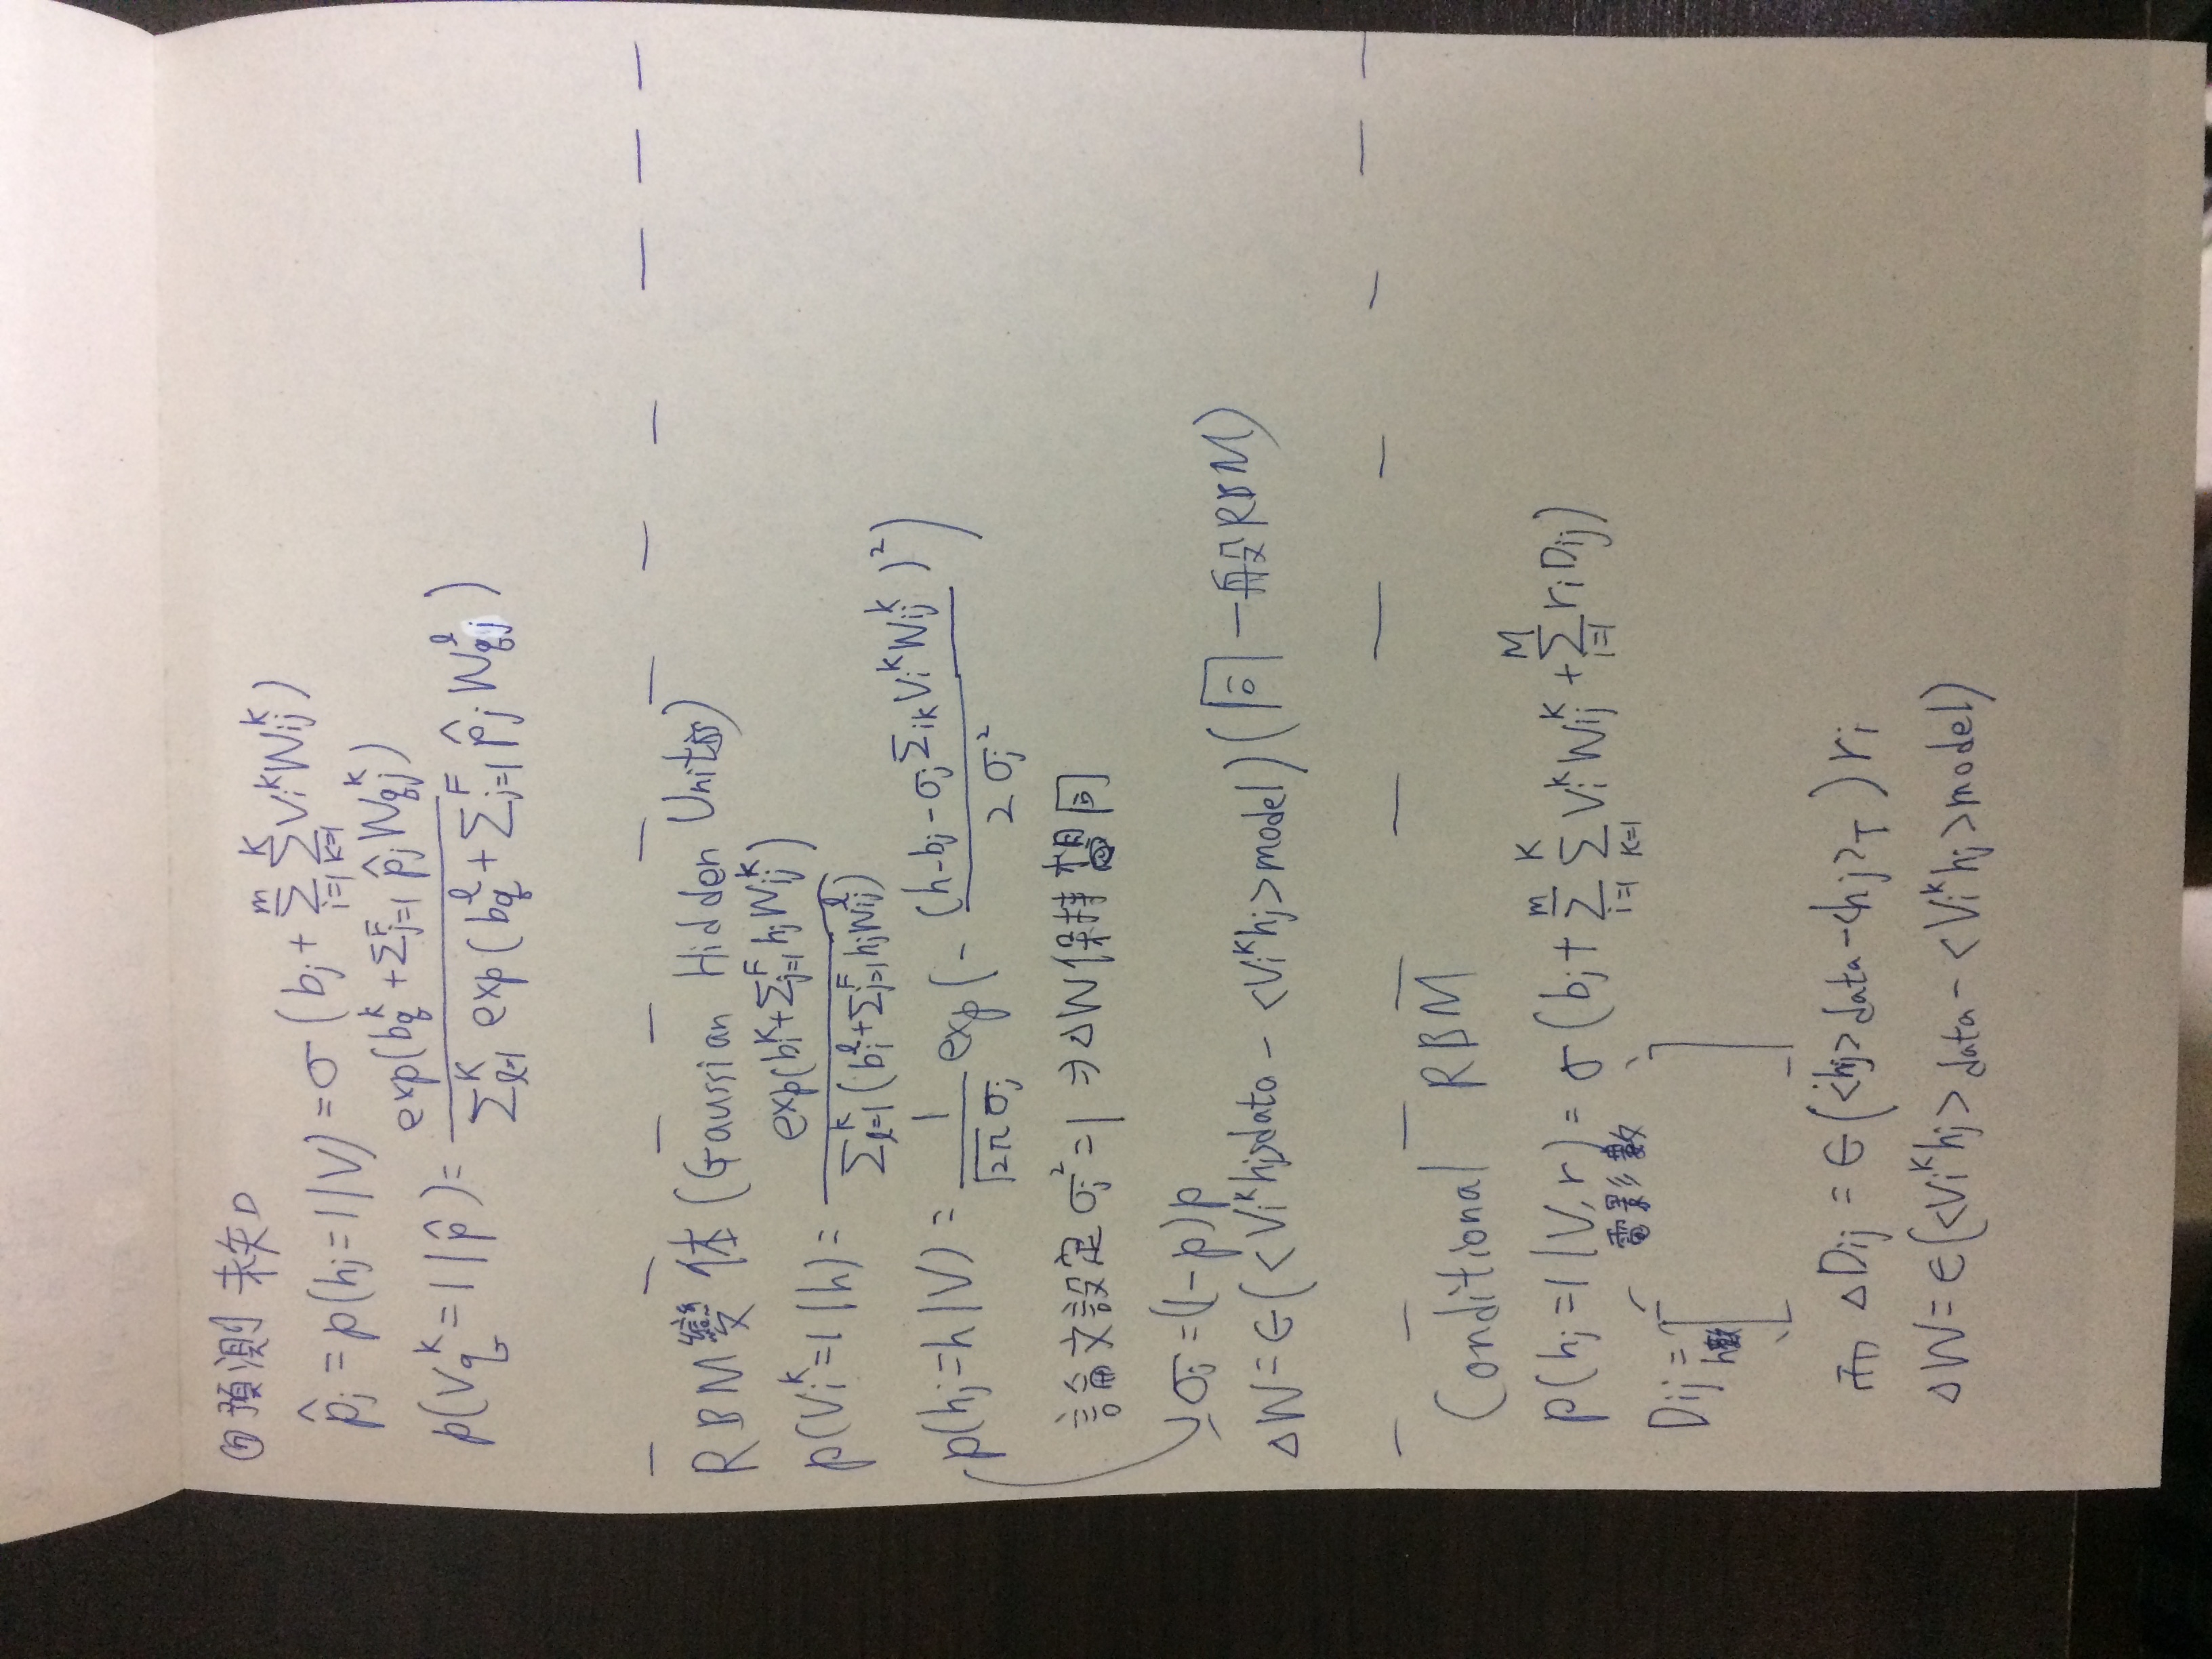 預測未知
p̂j = p(hj=1|V) = σ(bj + Σ_{i=1}^{m} Σ_{k=1}^{K} Vi^k Wij^k)
p(Vq^k=1|p̂) = exp(bq^k + Σ_{j=1}^{F} p̂j Wqj^k) / Σ_{l=1}^{K} exp(bq^l + Σ_{j=1}^{F} p̂j Wqj^l)
RBM變体(Gaussian Hidden Units)
p(Vi^k=1|h) = exp(bi^k + Σ_{j=1}^{F} hj Wij^k) / Σ_{l=1}^{K} (bi^l + Σ_{j=1}^{F} hj Wij^l)
p(hj=h|V) = 1/(√2π σj) exp(- (h-bj-σj Σ_{ik} Vi^k Wij^k)² / 2σj²)
論文設定 σj²=1 ⇒ △W保持相同
σj = (1-p)p
△W = ϵ(<Vi^k hj>data - <Vi^k hj>model)(同一般RBM)
Conditional RBM
p(hj=1|V,r) = σ(bj + Σ_{i=1}^{m} Σ_{k=1}^{K} Vi^k Wij^k + Σ_{i=1}^{M} ri Dij)
電影數
Dij = [ ]
h數
而 △Dij = ϵ(<hj>data - <hj>T) ri
△W = ϵ(<Vi^k hj>data - <Vi^k hj>model)